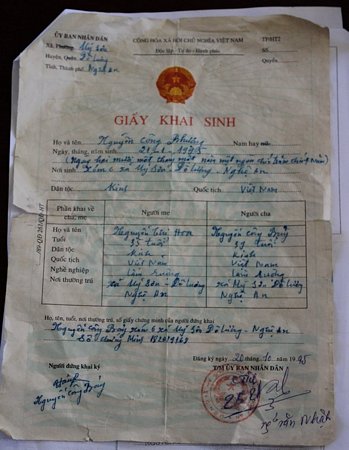 ỦY BAN NHÂN DÂN
Xã, Phường Mỹ Sơn
Huyện, Quận Đô Lương
Tỉnh, Thành phố Nghệ An
CỘNG HÒA XÃ HỘI CHỦ NGHĨA VIỆT NAM
Độc lập - Tự do - Hạnh phúc
TP/HT2
Số
Quyển số
GIẤY KHAI SINH
Họ và tên Nguyễn Công Phượng Nam hay nữ
Ngày, tháng, năm sinh 21-01-1995
(Ngày hai mươi mốt tháng một năm một ngàn chín trăm chín lăm)
Nơi sinh Xóm 6 xã Mỹ Sơn Đô Lương - Nghệ An
Dân tộc Kinh Quốc tịch Việt Nam
Phần khai về cha, mẹ Người mẹ Người cha
Họ và tên Nguyễn Thị Hoa Nguyễn Công Bảy
Tuổi 35 tuổi tuổi
Dân tộc Kinh Kinh
Quốc tịch Việt Nam Việt Nam
Nghề nghiệp Làm ruộng Làm ruộng
Nơi thường trú xã Mỹ Sơn - Đô Lương Nghệ An xã Mỹ Sơn - Đô Lương Nghệ An
Họ, tên, tuổi, nơi thường trú, số giấy chứng minh của người đứng khai
Nguyễn Công Bảy xóm 6 xã Mỹ Sơn Đô Lương - Nghệ An
Số chứng minh
Đăng ký ngày 20 tháng 10 năm 1995
Người đứng khai ký
TM ỦY BAN NHÂN DÂN
Nguyễn Công Bảy